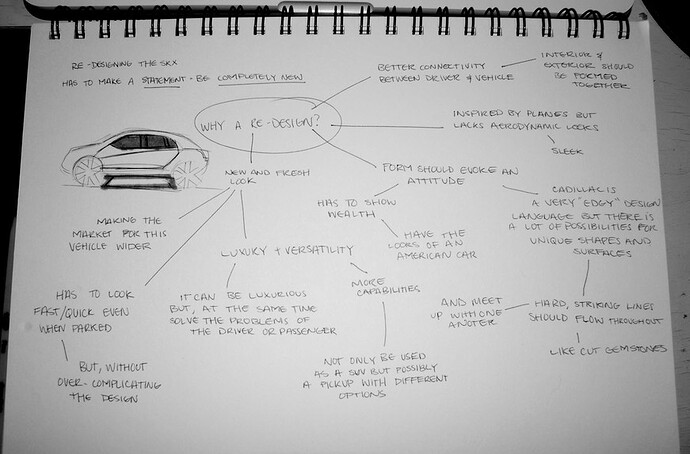 RE-DESIGNING THE SRX
HAS TO MAKE A STATEMENT - BE COMPLETELY NEW
BETTER CONNECTIVITY
BETWEEN DRIVER & VEHICLE
INTERIOR &
EXTERIOR SHOULD
BE FORMED
TOGETHER
WHY A RE-DESIGN?
INSPIRED BY PLANES BUT
LACKS AERODYNAMIC LOOKS
SLEEK
NEW AND FRESH
LOOK
FORM SHOULD EVOKE AN
ATTITUDE
HAS TO SHOW
WEALTH
HAVE THE
LOOKS OF AN
AMERICAN CAR
CADILLAC IS
A VERY "EDGY" DESIGN
LANGUAGE BUT THERE IS
A LOT OF POSSIBILITIES FOR
UNIQUE SHAPES AND
SURFACES
MAKING THE
MARKET FOR THIS
VEHICLE WIDER
LUXURY + VERSATILITY
HAS TO LOOK
FAST/QUICK EVEN
WHEN PARKED
IT CAN BE LUXURIOUS
BUT, AT THE SAME TIME
SOLVE THE PROBLEMS OF
THE DRIVER OR PASSENGER
MORE
CAPABILITIES
AND MEET
UP WITH ONE
ANOTER
HARD, STRIKING LINES
SHOULD FLOW THROUGHOUT
LIKE CUT GEMSTONES
BUT, WITHOUT
OVER-COMPLICATING
THE DESIGN
NOT ONLY BE USED
AS A SUV BUT POSSIBLY
A PICKUP WITH DIFFERENT
OPTIONS